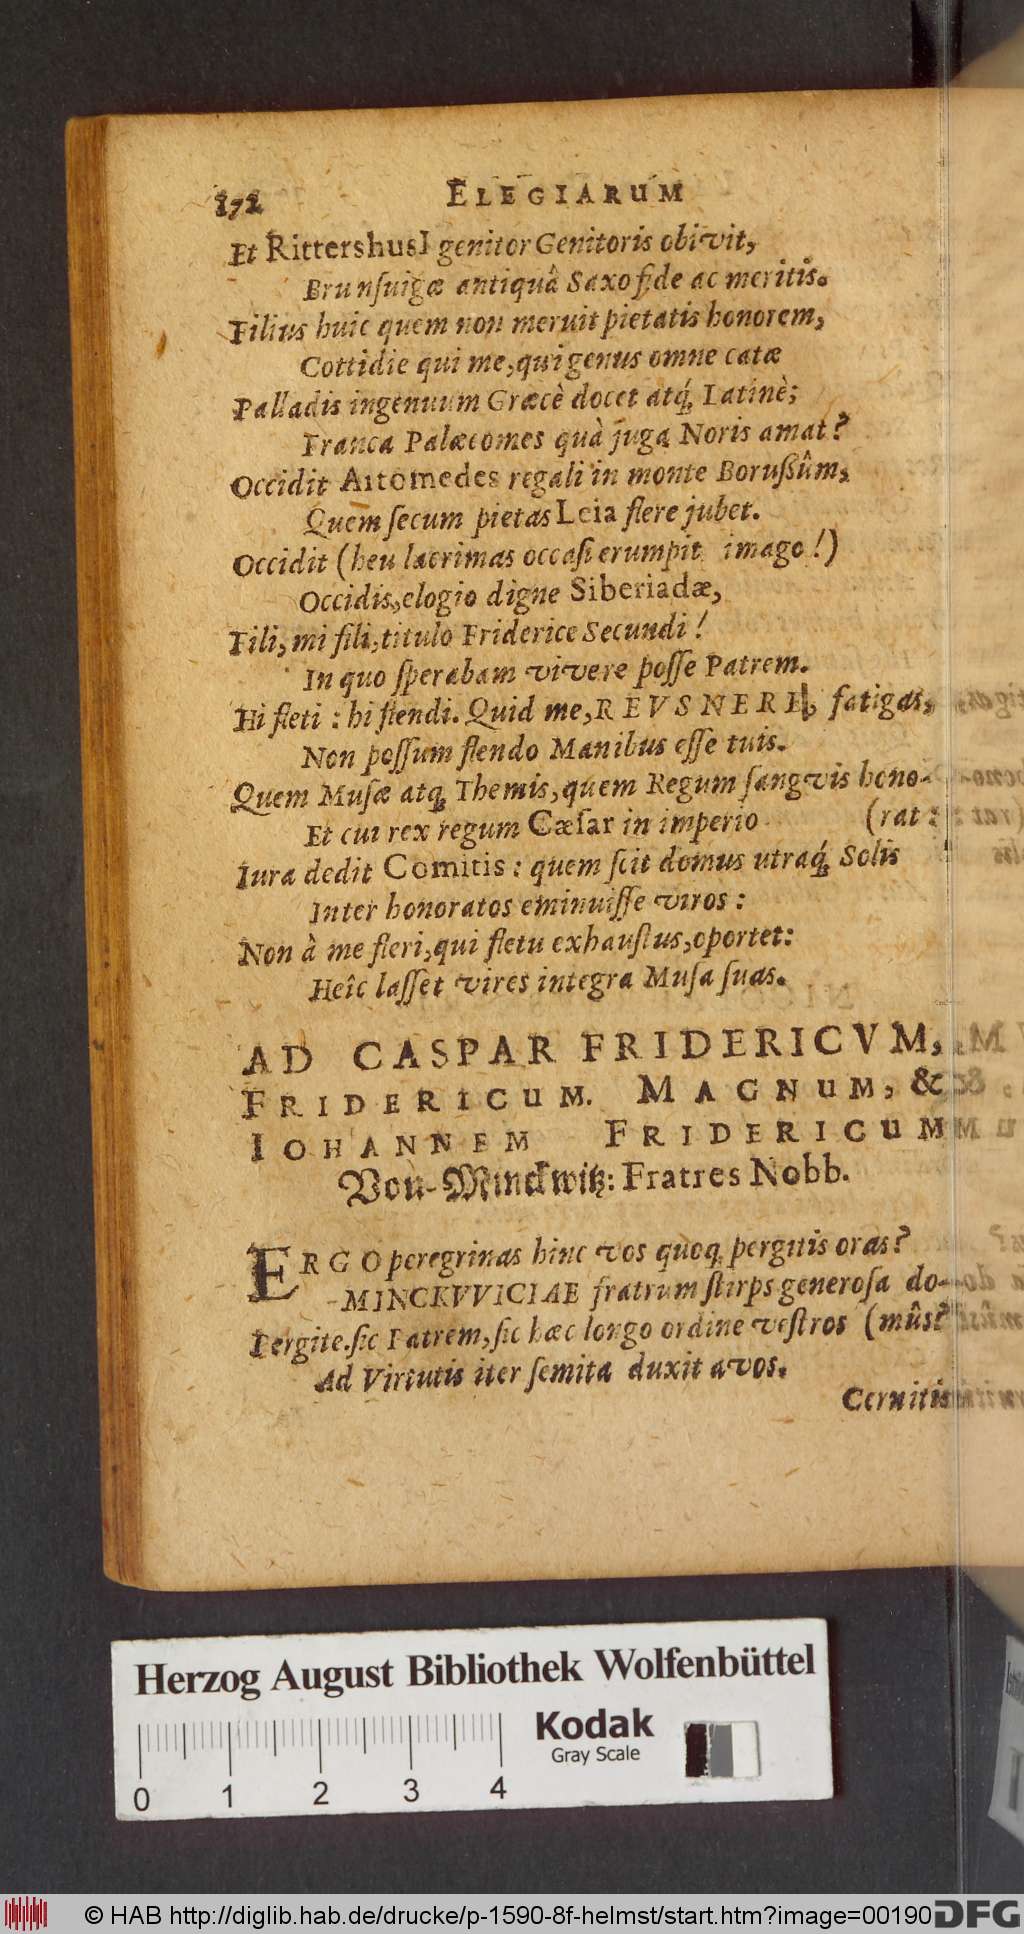 172 ELEGIARUM
Et RittershusI genitor Genitoris obivit,
Brunſuigæ antiquâ Saxo fide ac meritis.
Filius huic quem non meruit pietatis honorem,
Cottidie qui me, qui genus omne catæ
Palladis ingenuum Græcè docet atq́; Latinè;
Franca Palæcomes quà juga Noris amat?
Occidit Aitomedes regali in monte Borußûm,
Quem ſecum pietas Leia flere jubet.
Occidit (heu lacrimas occaſi erumpit imago!)
Occidis, elogio digne Siberiadæ,
Fili, mi fili, titulo Friderice Secundi!
In quo ſperabam vivere poſſe Patrem.
Hi fleti: hi flendi. Quid me, REVSNERE, fatigas,
Non poſſum flendo Manibus eſſe tuis.
Quem Muſæ atq; Themis, quem Regum ſangvis hono-
Et cui rex regum Cæſar in imperio (rat:
Iura dedit Comitis: quem ſcit domus utraq́; Solis
Inter honoratos eminuiſſe viros:
Non à me fleri, qui fletu exhauſtus, oportet:
Heîc laſſet vires integra Muſa ſuas.
AD CASPAR FRIDERICVM,
FRIDERICUM. MAGNUM, &
IOHANNEM FRIDERICUM
Von-Minckwitz: Fratres Nobb.
ERGO peregrinas hinc vos quoq; pergitis oras?
MINCKVVICIAE fratrum ſtirps generoſa do-
Pergite. ſic Patrem, ſic hæc longo ordine veſtros (mûs?
Ad Virtutis iter ſemita duxit avos.
Cernitis
Herzog August Bibliothek Wolfenbüttel
Kodak
Gray Scale
0 1 2 3 4
© HAB http://diglib.hab.de/drucke/p-1590-8f-helmst/start.htm?image=00190
DFG